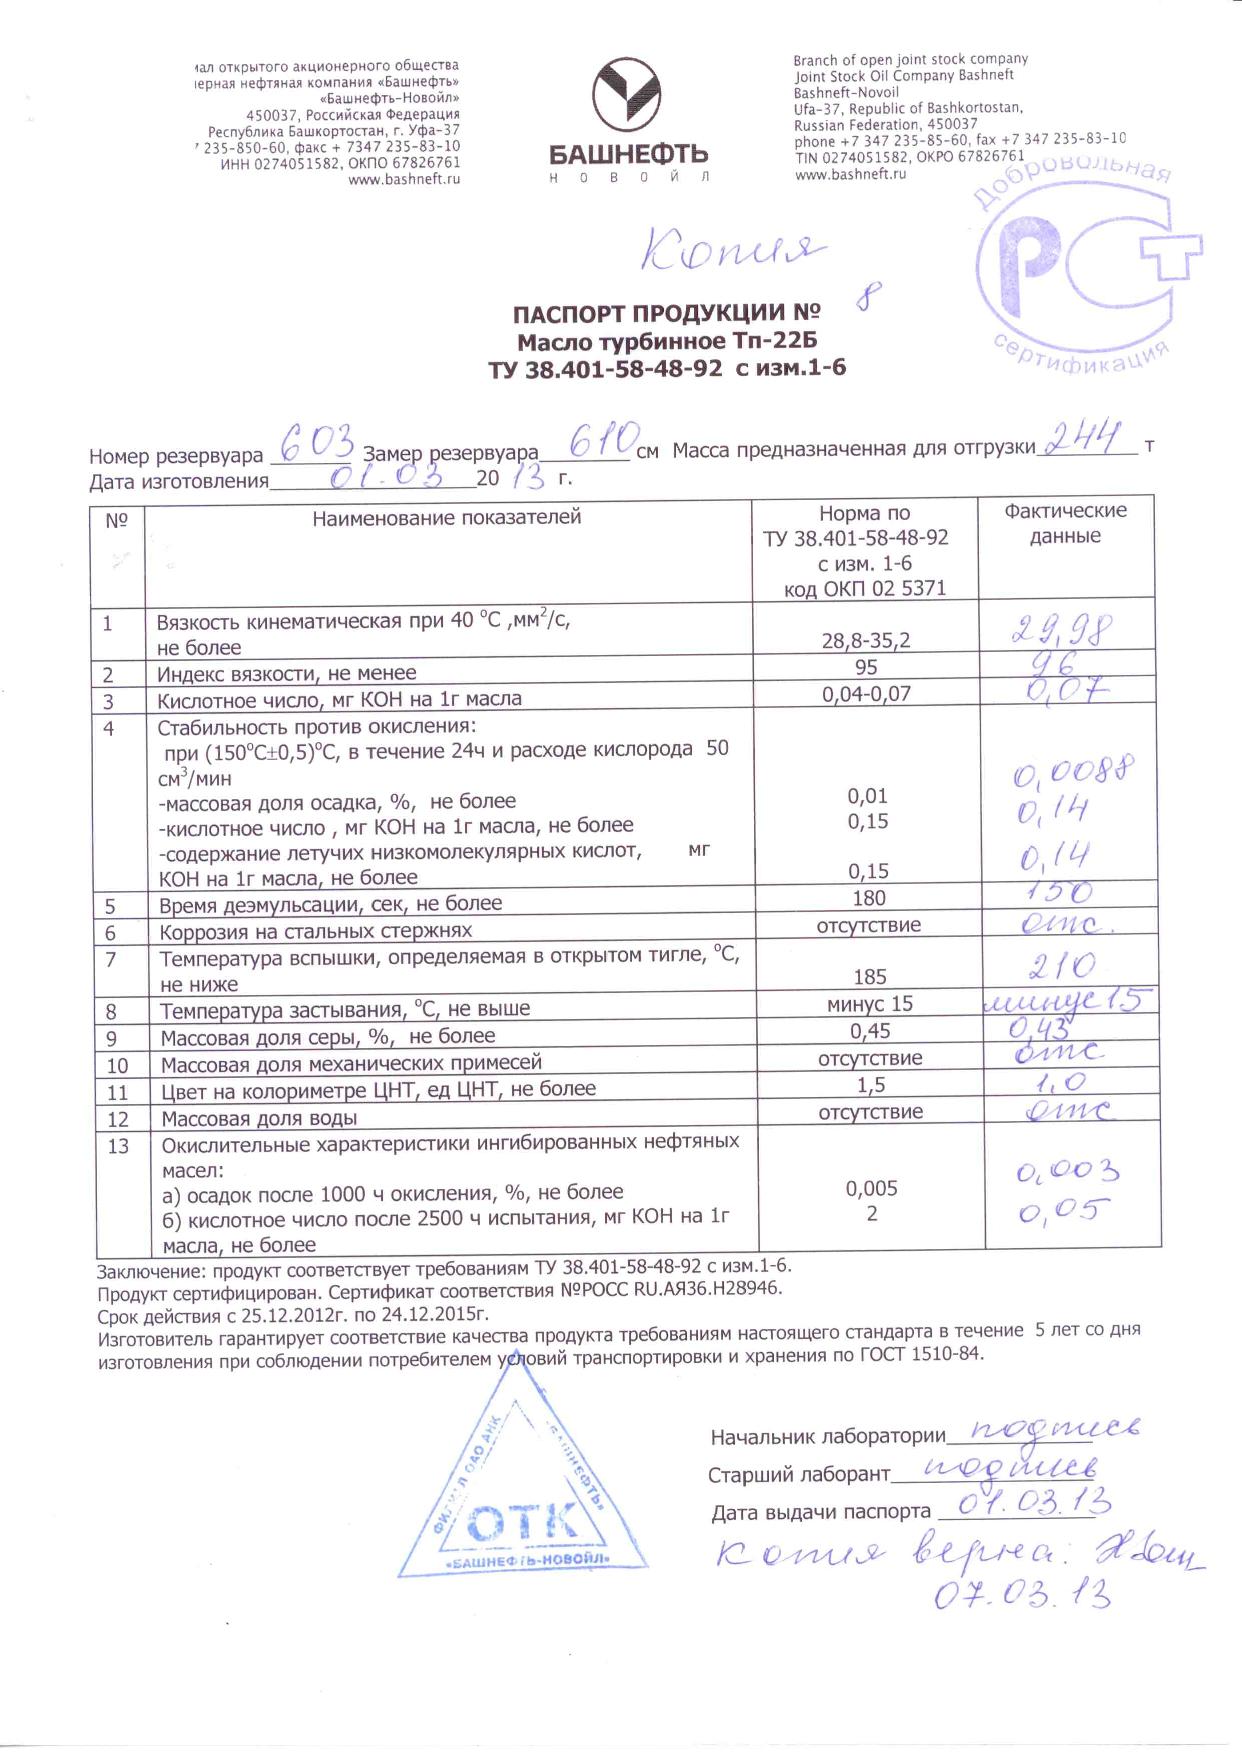 иал открытого акционерного общества
нерная нефтяная компания «Башнефть»
«Башнефть-Новойл»
450037, Российская Федерация
Республика Башкортостан, г. Уфа-37
7 235-850-60, факс + 7347 235-83-10
ИНН 0274051582, ОКПО 67826761
www.bashneft.ru
БАШНЕФТЬ
НОВОЙЛ
Branch of open joint stock company
Joint Stock Oil Company Bashneft
Bashneft-Novoil
Ufa-37, Republic of Bashkortostan,
Russian Federation, 450037
phone +7 347 235-85-60, fax +7 347 235-83-10
TIN 0274051582, OKPO 67826761
www.bashneft.ru
Добровольная
РСТ
сертификация
Копия
ПАСПОРТ ПРОДУКЦИИ № 8
Масло турбинное Тп-22Б
ТУ 38.401-58-48-92 с изм.1-6
Номер резервуара 603 Замер резервуара 610 см Масса предназначенная для отгрузки 244 т
Дата изготовления 01.03 20 13 г.
№ Наименование показателей Норма по ТУ 38.401-58-48-92 с изм. 1-6 код ОКП 02 5371 Фактические данные
1 Вязкость кинематическая при 40 °С ,мм²/с,
не более 28,8-35,2 29,98
2 Индекс вязкости, не менее 95 96
3 Кислотное число, мг КОН на 1г масла 0,04-0,07 0,07
4 Стабильность против окисления:
при (150°С±0,5)°С, в течение 24ч и расходе кислорода 50
см³/мин
-массовая доля осадка, %, не более 0,01 0,0088
-кислотное число , мг КОН на 1г масла, не более 0,15 0,14
-содержание летучих низкомолекулярных кислот, мг
КОН на 1г масла, не более 0,15 0,14
5 Время деэмульсации, сек, не более 180 150
6 Коррозия на стальных стержнях отсутствие отс.
7 Температура вспышки, определяемая в открытом тигле, °С,
не ниже 185 210
8 Температура застывания, °С, не выше минус 15 минус 15
9 Массовая доля серы, %, не более 0,45 0,43
10 Массовая доля механических примесей отсутствие отс
11 Цвет на колориметре ЦНТ, ед ЦНТ, не более 1,5 1,0
12 Массовая доля воды отсутствие отс
13 Окислительные характеристики ингибированных нефтяных
масел:
а) осадок после 1000 ч окисления, %, не более 0,005 0,003
б) кислотное число после 2500 ч испытания, мг КОН на 1г
масла, не более 2 0,05
Заключение: продукт соответствует требованиям ТУ 38.401-58-48-92 с изм.1-6.
Продукт сертифицирован. Сертификат соответствия №РОСС RU.АЯ36.Н28946.
Срок действия с 25.12.2012г. по 24.12.2015г.
Изготовитель гарантирует соответствие качества продукта требованиям настоящего стандарта в течение 5 лет со дня
изготовления при соблюдении потребителем условий транспортировки и хранения по ГОСТ 1510-84.
ФИЛИАЛ ОАО АНК «БАШНЕФТЬ»
ОТК
«БАШНЕФТЬ-НОВОЙЛ»
Начальник лаборатории подпись
Старший лаборант подпись
Дата выдачи паспорта 01.03.13
Копия верна:
07.03.13